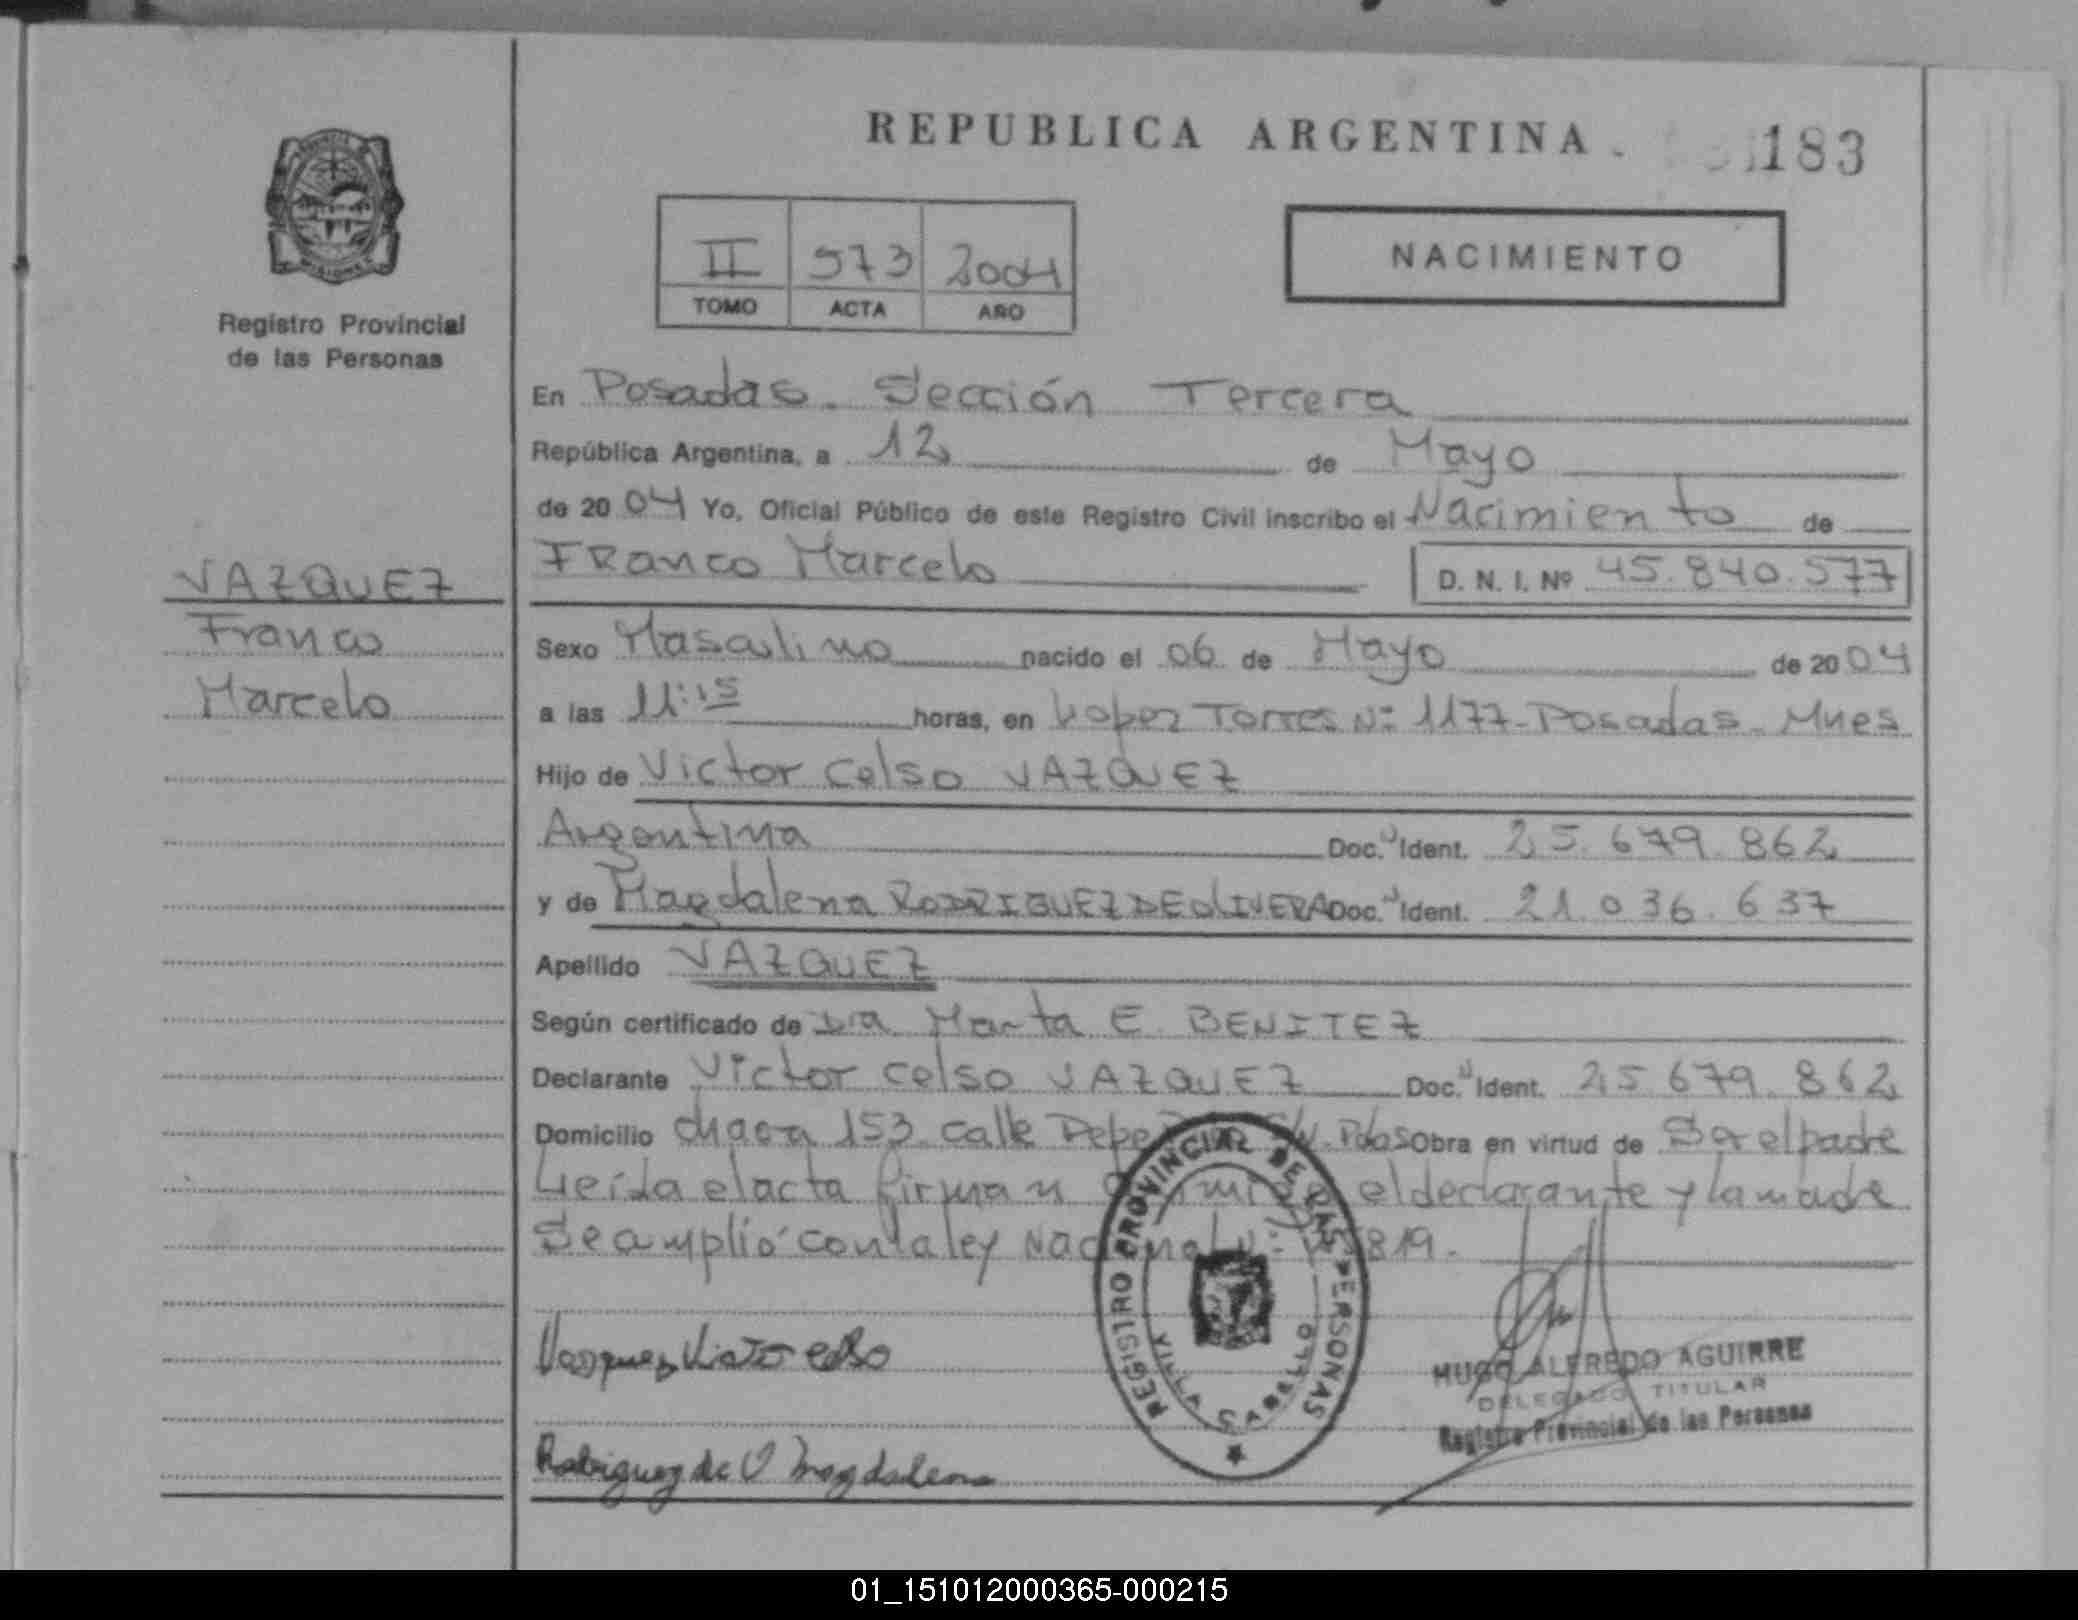 REPUBLICA ARGENTINA.
183
II 573 2004
TOMO ACTA AÑO
NACIMIENTO
PROVINCIA
MISIONES
Registro Provincial
de las Personas
VAZQUEZ
Franco
Marcelo
En Posadas. Sección Tercera
República Argentina, a 12 de Mayo
de 2004 Yo, Oficial Público de este Registro Civil inscribo el Nacimiento de
Franco Marcelo D. N. I. Nº 45.840.577
Sexo Masculino nacido el 06 de Mayo de 2004
a las 11:15 horas, en Lopez Torres Nº 1177-Posadas. Mnes
Hijo de Victor Celso VAZQUEZ
Argentina Doc. Ident. 25.679.862
y de Magdalena RODRIGUEZ DE OLIVERA Doc. Ident. 21.036.637
Apellido VAZQUEZ
Según certificado de Dra Marta E. BENITEZ
Declarante Victor Celso VAZQUEZ Doc. Ident. 25.679.862
Domicilio chacra 153. calle S/N. Pdas Obra en virtud de Ser el padre
Leída el acta firman el declarante y la madre
Se amplió con la ley Nacional 819.
REGISTRO PROVINCIAL DE LAS PERSONAS
VILLA CABELLO
Vazquez Victor Celso
HUGO ALFREDO AGUIRRE
DELEGADO TITULAR
Registro Provincial de las Personas
Rodriguez de O Magdalena
01_151012000365-000215